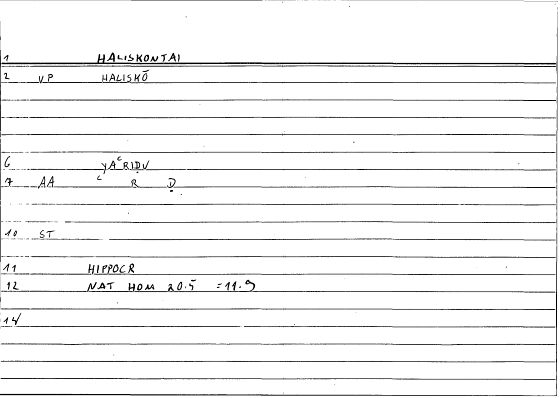 1 HALISKONTAI
2 VP HALISKŌ
6 YAʿRIḌU
7 AA ʿ R Ḍ
10 ST
11 HIPPOCR
12 NAT HOM 20.5 =11.9
14